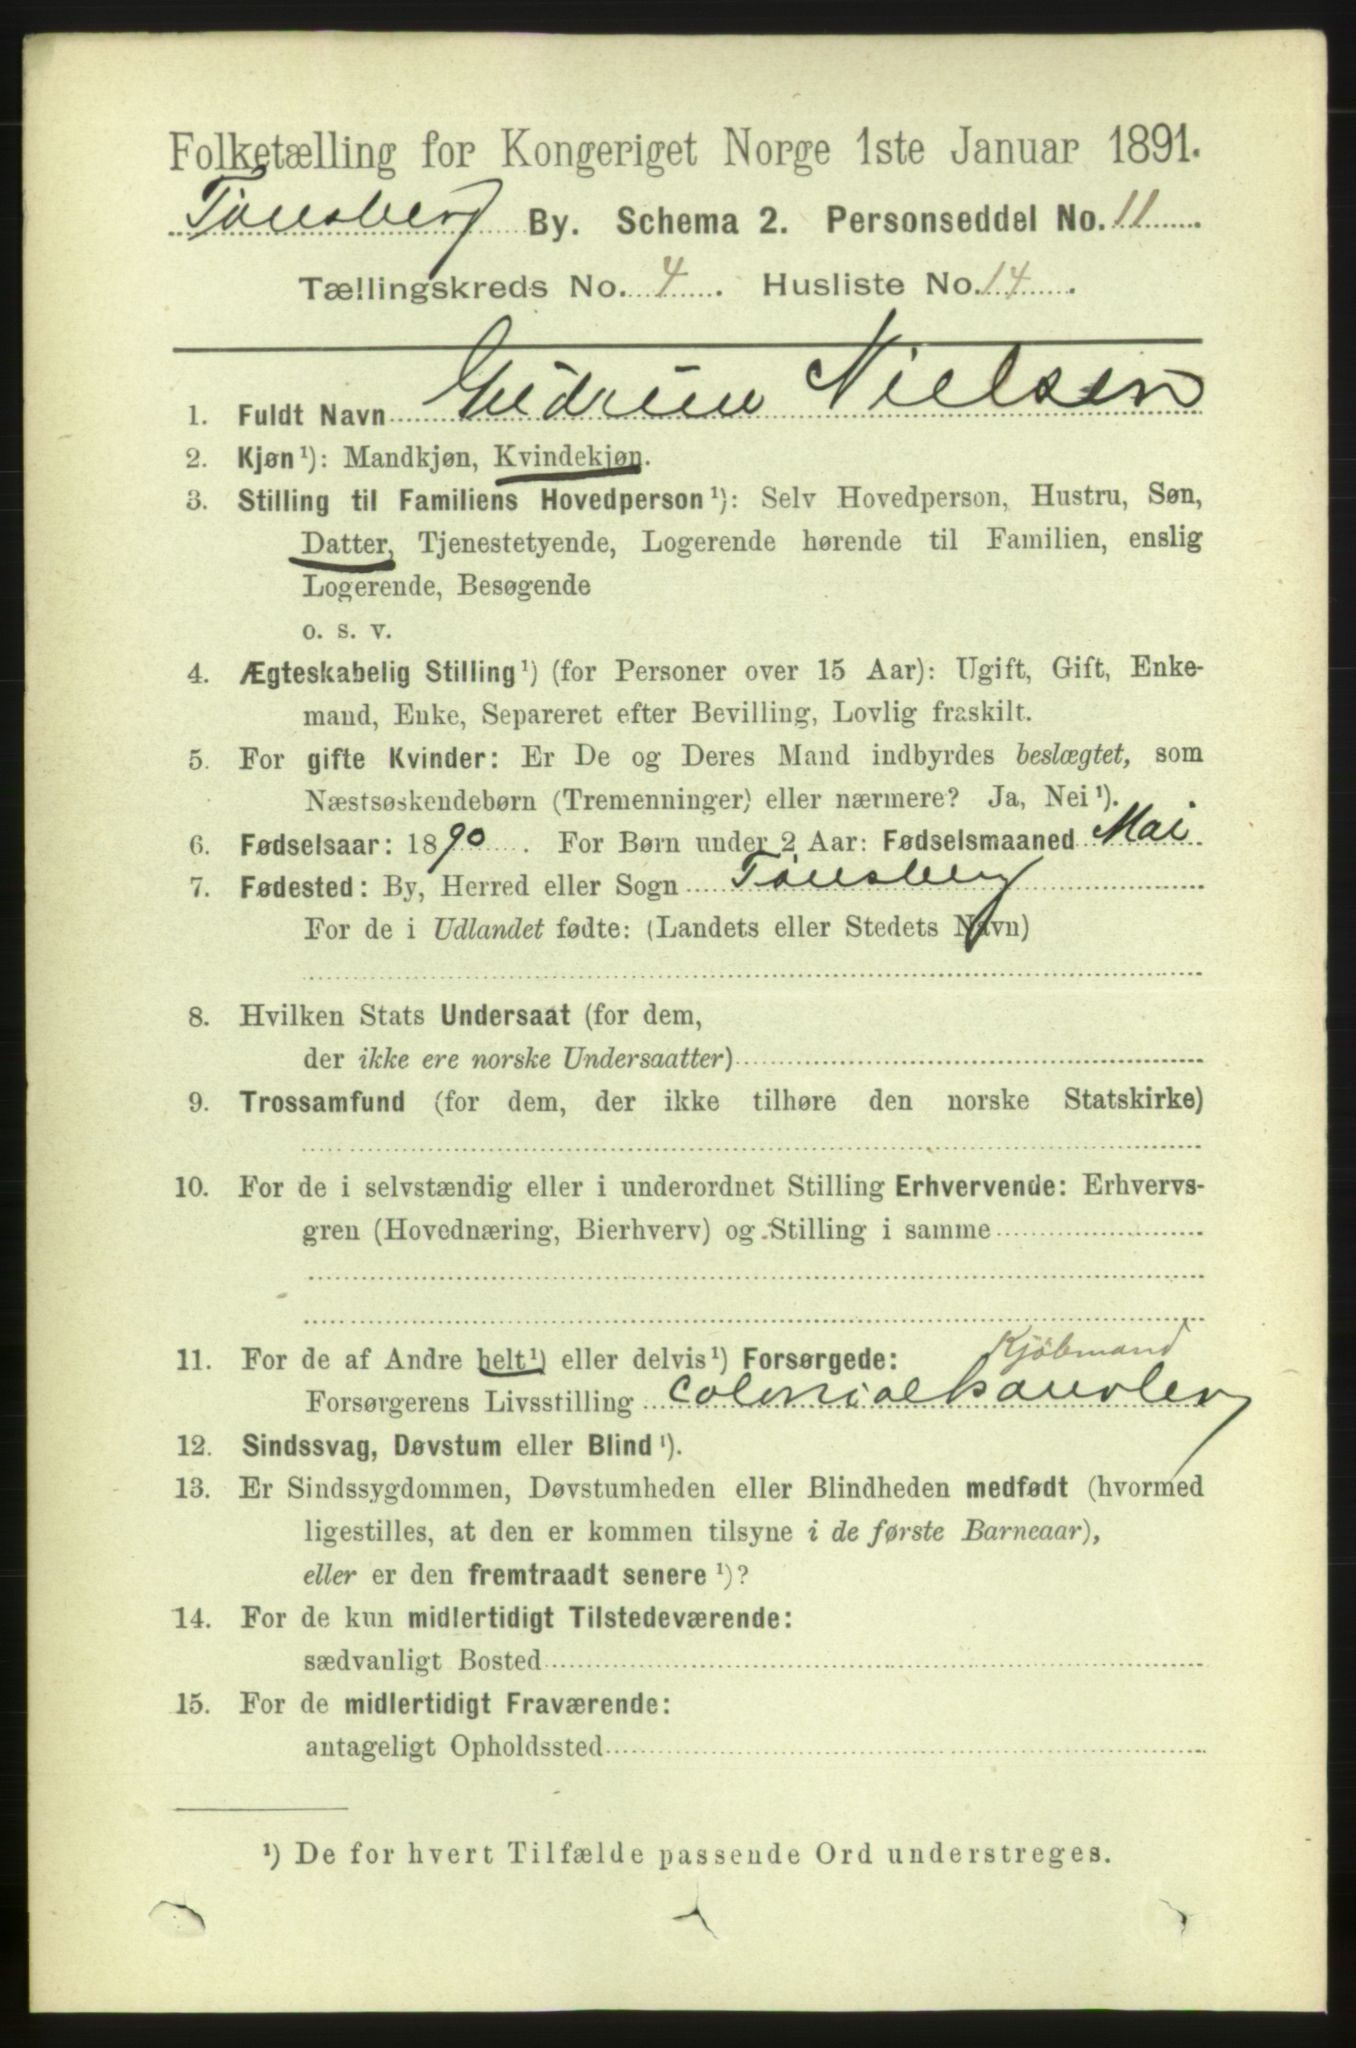 Folketælling for Kongeriget Norge 1ste Januar 1891.
Tønsberg By. Schema 2. Personseddel No. 11
Tællingskreds No. 4. Husliste No. 14.
1. Fuldt Navn Gudrun Nielsen
2. Kjøn¹): Mandkjøn, Kvindekjøn.
3. Stilling til Familiens Hovedperson¹): Selv Hovedperson, Hustru, Søn,
Datter, Tjenestetyende, Logerende hørende til Familien, enslig
Logerende, Besøgende
o. s. v.
4. Ægteskabelig Stilling¹) (for Personer over 15 Aar): Ugift, Gift, Enke-
mand, Enke, Separeret efter Bevilling, Lovlig fraskilt.
5. For gifte Kvinder: Er De og Deres Mand indbyrdes beslægtet, som
Næstsøskendebørn (Tremenninger) eller nærmere? Ja, Nei¹).
6. Fødselsaar: 1890. For Børn under 2 Aar: Fødselsmaaned Mai
7. Fødested: By, Herred eller Sogn Tønsberg
For de i Udlandet fødte: (Landets eller Stedets Navn)
8. Hvilken Stats Undersaat (for dem,
der ikke ere norske Undersaatter)
9. Trossamfund (for dem, der ikke tilhøre den norske Statskirke)
10. For de i selvstændig eller i underordnet Stilling Erhvervende: Erhvervs-
gren (Hovednæring, Bierhverv) og Stilling i samme
Kjøbmand
11. For de af Andre helt¹) eller delvis¹) Forsørgede:
Forsørgerens Livsstilling colonialhandler
12. Sindssvag, Døvstum eller Blind¹).
13. Er Sindssygdommen, Døvstumheden eller Blindheden medfødt (hvormed
ligestilles, at den er kommen tilsyne i de første Barneaar),
eller er den fremtraadt senere¹)?
14. For de kun midlertidigt Tilstedeværende:
sædvanligt Bosted
15. For de midlertidigt Fraværende:
antageligt Opholdssted
¹) De for hvert Tilfælde passende Ord understreges.